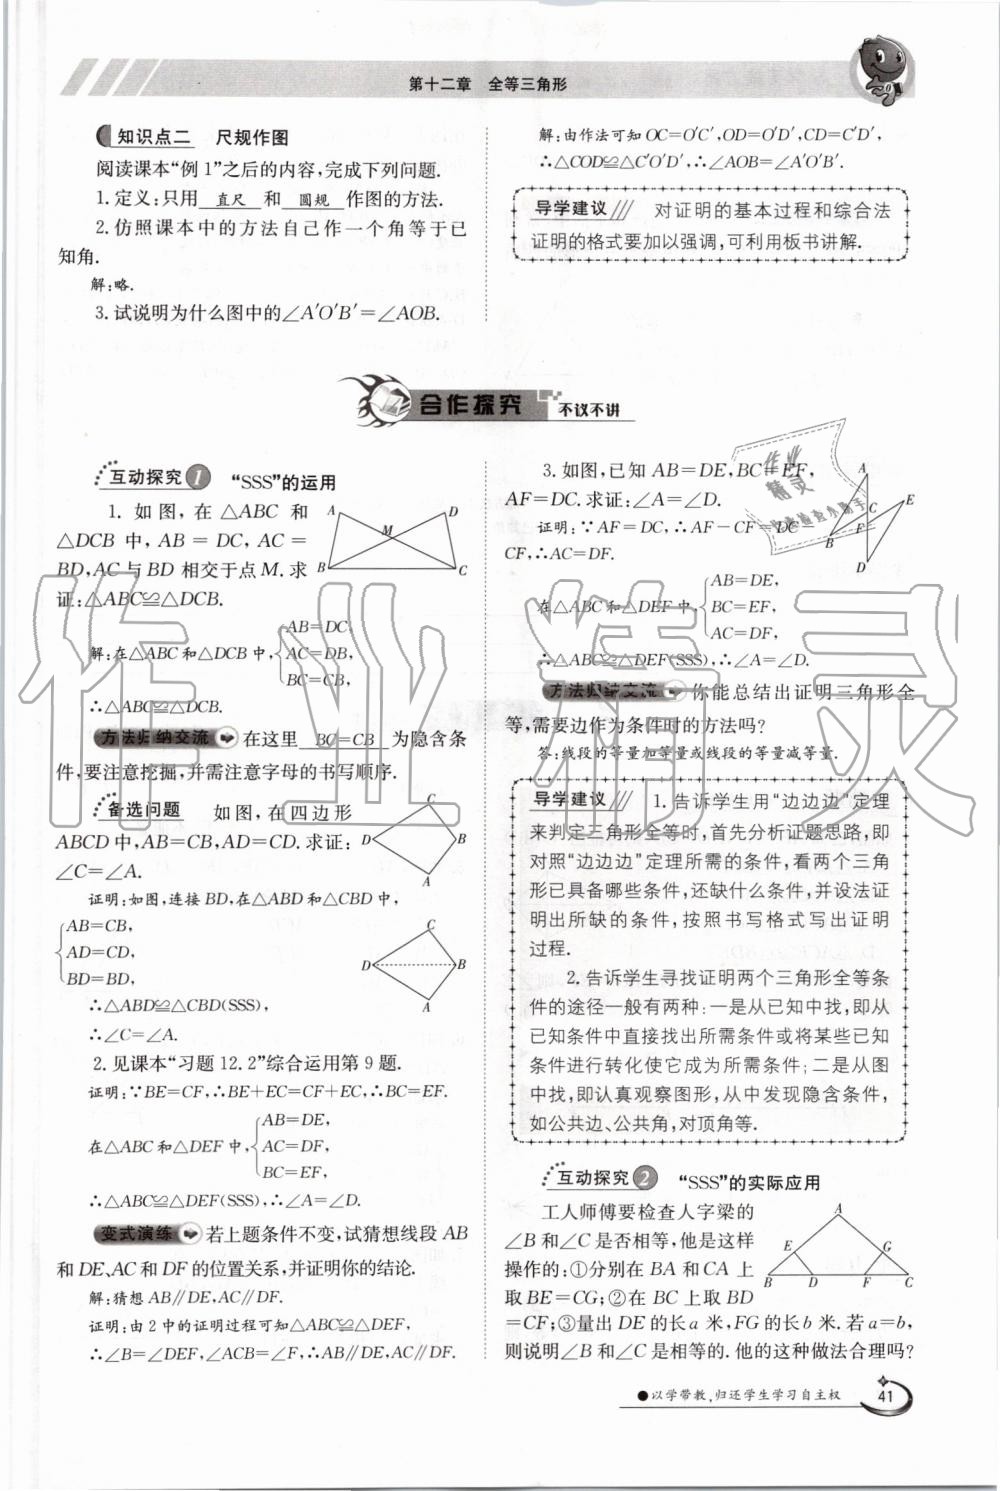 第十二章 全等三角形
知识点二 尺规作图
阅读课本“例1”之后的内容,完成下列问题.
1.定义:只用 直尺 和 圆规 作图的方法.
2.仿照课本中的方法自己作一个角等于已
知角.
解:略.
3.试说明为什么图中的∠A′O′B′=∠AOB.
解:由作法可知OC=O′C′,OD=O′D′,CD=C′D′,
∴△COD≌△C′O′D′,∴∠AOB=∠A′O′B′.
导学建议 对证明的基本过程和综合法
证明的格式要加以强调,可利用板书讲解.
合作探究 不议不讲
互动探究1 “SSS”的运用
1. 如图,在△ABC 和
△DCB 中,AB = DC,AC =
BD,AC与BD 相交于点M.求
证:△ABC≌△DCB.
A D M B C
解:在△ABC和△DCB中,
AB=DC,
AC=DB,
BC=CB,
∴△ABC≌△DCB.
方法归纳交流 在这里 BC=CB 为隐含条
件,要注意挖掘,并需注意字母的书写顺序.
备选问题 如图,在四边形
ABCD中,AB=CB,AD=CD.求证:
∠C=∠A.
C D B A
证明:如图,连接BD,在△ABD和△CBD中,
AB=CB,
AD=CD,
BD=BD,
C D B A
∴△ABD≌△CBD(SSS),
∴∠C=∠A.
2.见课本“习题12.2”综合运用第9题.
证明:∵BE=CF,∴BE+EC=CF+EC,∴BC=EF.
在△ABC和△DEF中,
AB=DE,
AC=DF,
BC=EF,
∴△ABC≌△DEF(SSS),∴∠A=∠D.
变式演练 若上题条件不变,试猜想线段AB
和DE、AC和DF的位置关系,并证明你的结论.
解:猜想AB∥DE,AC∥DF.
证明:由2中的证明过程可知△ABC≌△DEF,
∴∠B=∠DEF,∠ACB=∠F,∴AB∥DE,AC∥DF.
3.如图,已知AB=DE,BC=EF,
AF=DC.求证:∠A=∠D.
A E C B F D
证明:∵AF=DC,∴AF-CF=DC-
CF,∴AC=DF.
在△ABC和△DEF中,
AB=DE,
BC=EF,
AC=DF,
∴△ABC≌△DEF(SSS),∴∠A=∠D.
方法归纳交流 你能总结出证明三角形全
等,需要边作为条件时的方法吗?
答:线段的等量加等量或线段的等量减等量.
导学建议 1.告诉学生用“边边边”定理
来判定三角形全等时,首先分析证题思路,即
对照“边边边”定理所需的条件,看两个三角
形已具备哪些条件,还缺什么条件,并设法证
明出所缺的条件,按照书写格式写出证明
过程.
2.告诉学生寻找证明两个三角形全等条
件的途径一般有两种:一是从已知中找,即从
已知条件中直接找出所需条件或将某些已知
条件进行转化使它成为所需条件;二是从图
中找,即认真观察图形,从中发现隐含条件,
如公共边、公共角,对顶角等.
互动探究2 “SSS”的实际应用
工人师傅要检查人字梁的
∠B和∠C是否相等,他是这样
操作的:①分别在BA和CA上
取BE=CG;②在BC上取BD
=CF;③量出DE的长a米,FG的长b米.若a=b,
则说明∠B和∠C是相等的.他的这种做法合理吗?
A E G B D F C
以学带教,归还学生学习自主权
41
作业精灵
作业
精灵